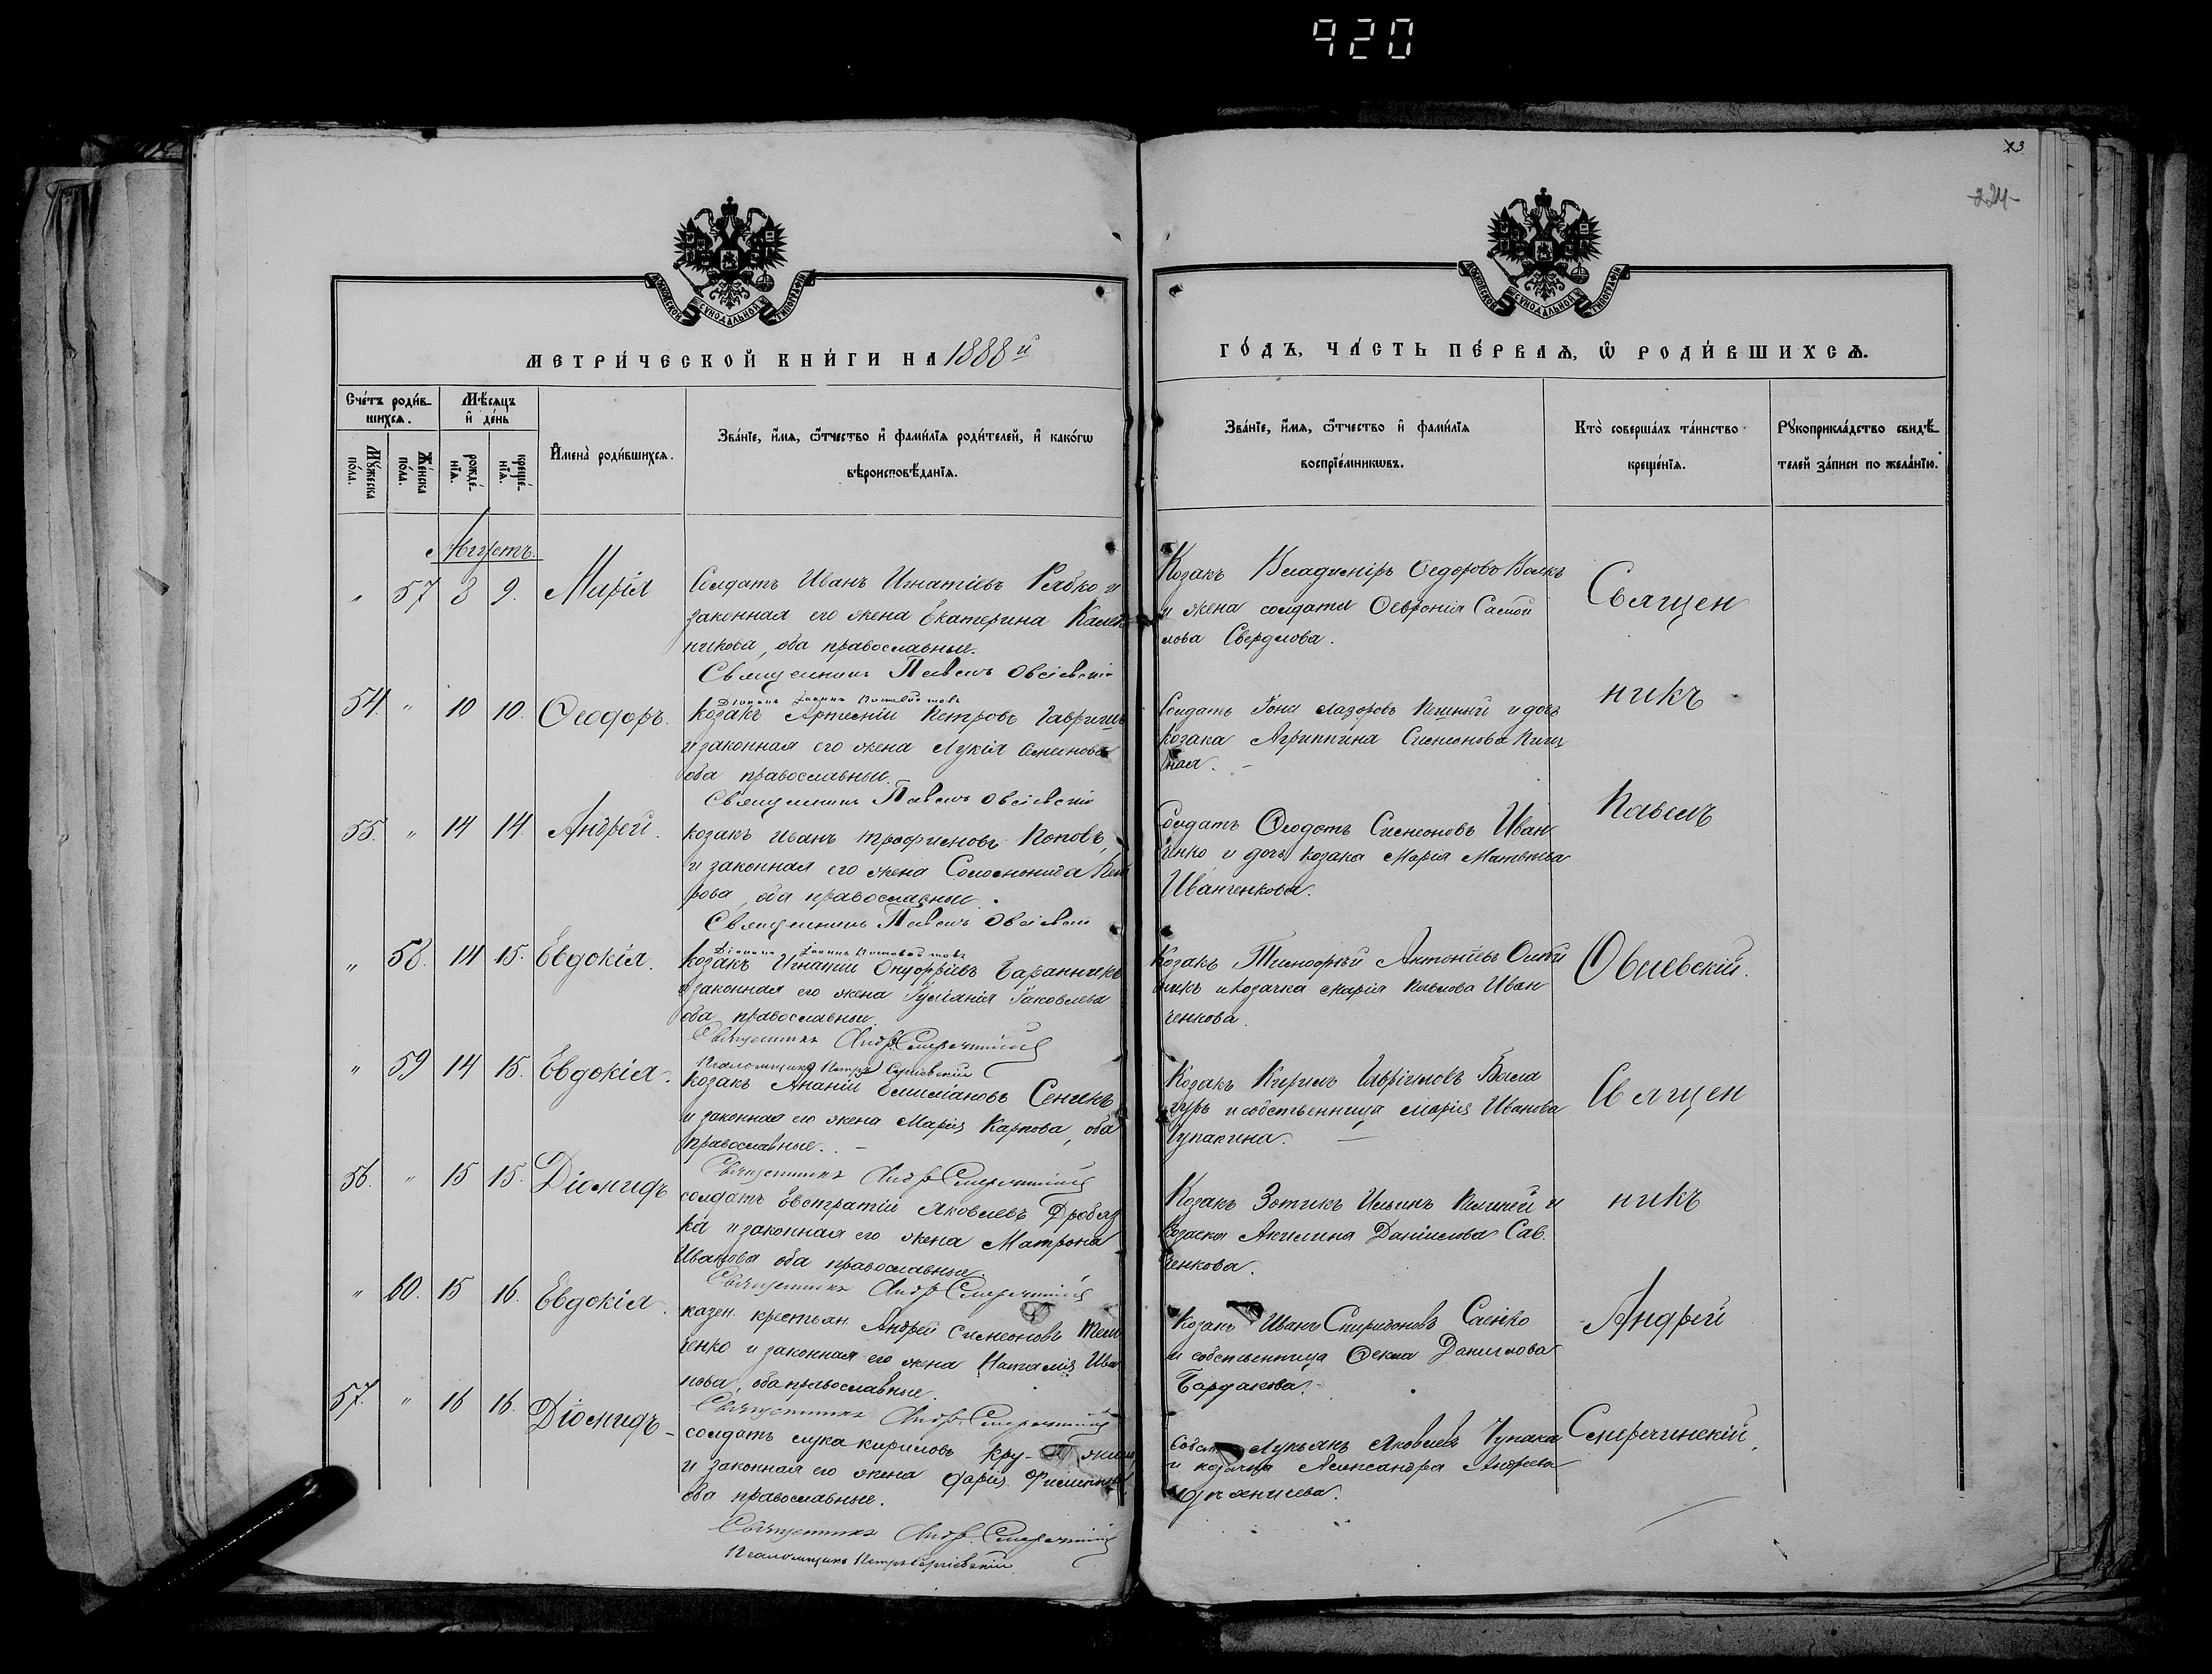 920
23
224
МОСКОВСКОЙ СѴНОДАЛЬНОЙ ТИПОГРАФІИ
МОСКОВСКОЙ СѴНОДАЛЬНОЙ ТИПОГРАФІИ
МЕТРИ́ЧЕСКОЙ КНИ́ГИ НА 1888й
ГО́ДЪ, ЧА́СТЬ ПЕ́РВАѦ, Ѡ РОДИ́ВШИХСѦ.
Сче́тъ роди́в-
шихсѧ.
Мѣ́сѧцъ
и҆ де́нь
Мꙋ́жеска по́ла.
Же́нска по́ла.
рожде́-
нїѧ.
креще́-
нїѧ.
И҆мена̀ роди́вшихсѧ.
Зва́нїе, и҆́мѧ, ѻ҆́тчество и҆ фамѝлїѧ роди́телей, и҆ како́гѡ
вѣроисповѣ́данїѧ.
Зва́нїе, и҆́мѧ, ѻ҆́тчество и҆ фами́лїѧ
воспрїе́мникѡвъ.
Кто̀ соверша́лъ та́инство
креще́нїѧ.
Рꙋкоприкла́дство свидѣ́-
телей за́писи по жела́нїю.
Августъ.
" 57 8 9. Марія Солдатъ Иванъ Игнатіевъ Рябко и
законная его жена Екатерина
оба православные.
Священникъ Павелъ Овсіевскій
Козакъ Владиміръ Ѳедоровъ Волкъ
и жена солдата Ѳевронія Самой
лова Свердлова.
Священ
54. " 10 10. Ѳеодоръ. Козакъ Артемій Петровъ Гавришъ
и законная его жена Лукія Симеонова
оба православные.
Священникъ Павелъ Овсіевскій
Солдатъ Іона Лазоровъ и дочь
козака Агриппина Симеонова
ная.
никъ
55. " 14 14. Андрей. козакъ Иванъ Трофимовъ Поповъ,
и законная его жена Соломонида Пет
рова, оба православные.
Священникъ Павелъ Овсіевскій
Солдатъ Ѳеодотъ Симеоновъ Иван
ченко и дочь козака Марія Матвѣева
Иванченкова.
Павелъ
" 58. 14 15. Евдокія. Козакъ Игнатій Онуфріевъ Баранникъ
и законная его жена Іуліанія Іаковлева
оба православные.
Священникъ Андр. Смеречинскій
Псаломщикъ Петръ Сергіевскій
Козакъ Тимофѣй Антоніевъ Олій
никъ и козачка Марія Павлова Иван
ченкова.
Овсіевскій.
" 59 14 15. Евдокія. Козакъ Ананій Емиліановъ Сенчикъ
и законная его жена Марія Карпова, оба
православные. –
Священникъ Андр. Смеречинскій
Козакъ Кирилъ Гавріиловъ Бала
гуръ и собственница Марія Иванова
Чупакина. –
Священ
56. " 15 15. Діомидъ солдатъ Евстратій Яковлевъ Дробяз
ка и законная его жена Матрона
Иванова оба православные
Священникъ Андр. Смеречинскій
Козакъ Зотикъ Ильинъ и
козачка Акилина Даніилова Сав
ченкова.
никъ
" 60. 15 16. Евдокія. казен. крестьян. Андрей Симеоновъ
ченко и законная его жена Наталія Ива
нова, оба православные.
Священникъ Андр. Смеречинскій
Козакъ Иванъ Спиридоновъ Саенко
и собственница Ѳекла Данилова
Бардакова.
Андрей
57. " 16 16. Діомидъ – солдатъ Лука Кириловъ Кру-
и законная его жена Дарія
оба православные.
Священникъ Андр. Смеречинскій
Псаломщикъ Петръ Сергіевскій
Лукьянъ Яковлевъ Чупака
и козачка Александра Андреева
Смеречинскій.